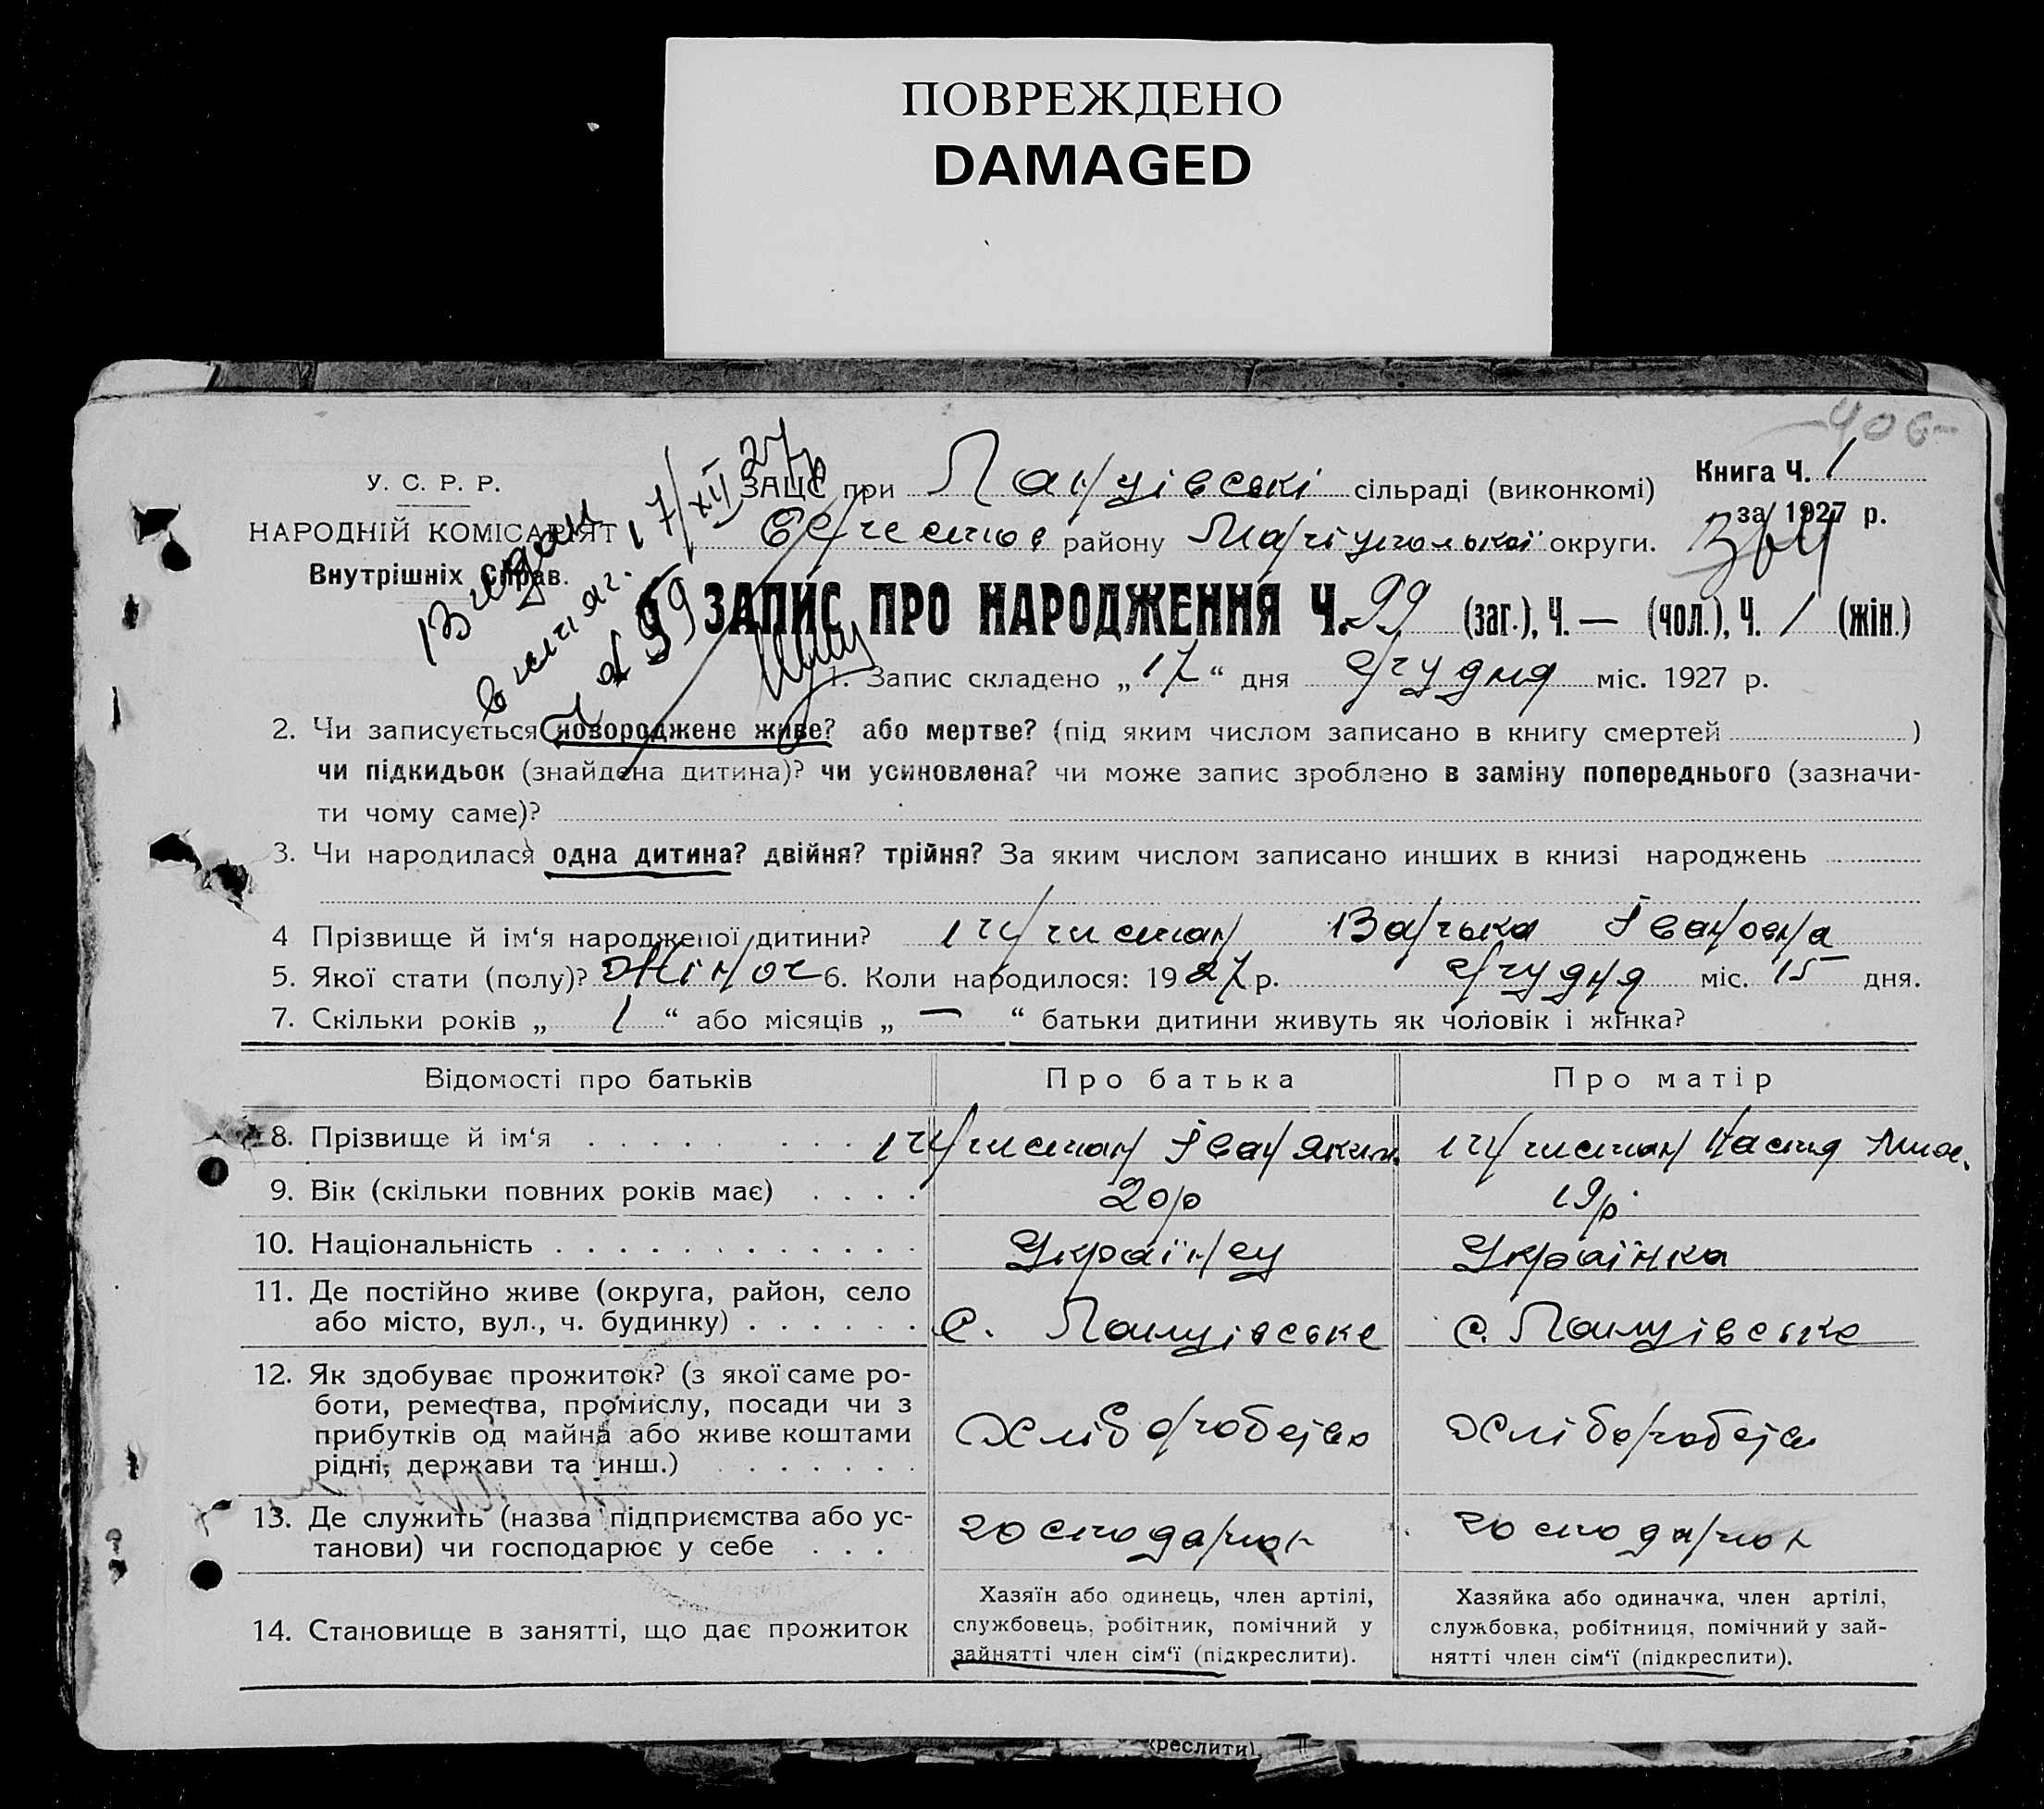 ПОВРЕЖДЕНО
DAMAGED
406
У. С. Р. Р.
НАРОДНІЙ КОМІСАРІЯТ
Внутрішніх Справ.
Видан
витяг. 17/XII 27р
№ 99
ЗАЦС при сільраді (виконкомі)
району Маріупольської округи.
Книга Ч. 1
за 1927 р.
ЗАПИС ПРО НАРОДЖЕННЯ Ч. 99 (заг.), Ч. — (чол.), Ч. 1 (жін.)
1. Запис складено „ 17 “ дня грудня міс. 1927 р.
2. Чи записується новороджене живе? або мертве? (під яким числом записано в книгу смертей )
чи підкидьок (знайдена дитина)? чи усиновлена? чи може запис зроблено в заміну попереднього (зазначи-
ти чому саме)?
3. Чи народилася одна дитина? двійня? трійня? За яким числом записано инших в книзі народжень
4 Прізвище й ім‘я народженої дитини? Варька Івановна
5. Якої стати (полу)? Жіноч 6. Коли народилося: 1927 р. грудня міс. 15 дня.
7. Скільки років „ 1 “ або місяців „ — “ батьки дитини живуть як чоловік і жінка?
Відомості про батьків Про батька Про матір
8. Прізвище й ім‘я . . . . . . . . . Іван Яким. Настя
9. Вік (скільки повних років має) . . . . 20р 19р.
10. Національність . . . . . . . . . . . . . Українец Українка
11. Де постійно живе (округа, район, село
або місто, вул., ч. будинку) . . . . . . с. с.
12. Як здобуває прожиток? (з якої саме ро-
боти, ремества, промислу, посади чи з
прибутків од майна або живе коштами
рідні, держави та инш.) . . . . . . .
13. Де служить (назва підприємства або ус-
танови) чи господарює у себе . . . .
14. Становище в занятті, що дає прожиток
Хазяїн або одинець, член артілі,
службовець, робітник, помічний у
зайнятті член сім‘ї (підкреслити).
Хазяйка або одиначка, член артілі,
службовка, робітниця, помічний у зай-
нятті член сім‘ї (підкреслити).
креслити).